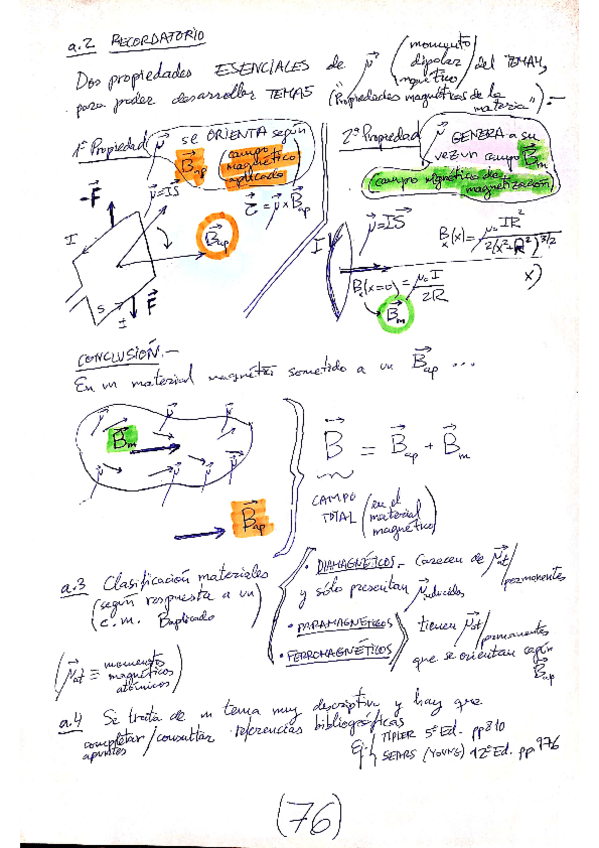 a.2 RECORDATORIO
Dos propiedades ESENCIALES de μ⃗ (momento dipolar magnético) del TEMA4,
para poder desarrollar TEMA5 ("Propiedades magnéticas de la materia"):-
1ª Propiedad μ⃗ se ORIENTA según
B⃗ap (campo magnético aplicado)
μ⃗=IS⃗
τ⃗ = μ⃗ × B⃗ap
-F⃗
I
B⃗ap
S
I
F⃗
2ª Propiedad μ⃗ GENERA a su
vez un campo B⃗m
(campo magnético de magnetización)
μ⃗=IS⃗
I
Bx(x) = μ₀ I R² / 2(x²+R²)^3/2
Bx(x=0) = μ₀ I / 2R
x)
B⃗m
CONCLUSIÓN.-
En un material magnético sometido a un B⃗ap ...
μ⃗ μ⃗ μ⃗
B⃗m
μ⃗ μ⃗ μ⃗
B⃗ap
B⃗ = B⃗ap + B⃗m
CAMPO TOTAL (en el material magnético)
a.3 Clasificación materiales
(según respuesta a un
c.m. Baplicado)
(μ⃗at ≡ momentos magnéticos atómicos)
• DIAMAGNÉTICOS.- Carecen de μ⃗at/permanentes
y sólo presentan μ⃗inducidos
• PARAMAGNÉTICOS
• FERROMAGNÉTICOS
tienen μ⃗at/permanentes
que se orientan según
B⃗ap
a.4 Se trata de un tema muy descriptivo y hay que
completar/consultar referencias bibliográficas
apuntes
Ej: TIPLER 5ª Ed. pp 810
SEARS (YOUNG) 12ª Ed. pp 976
(76)